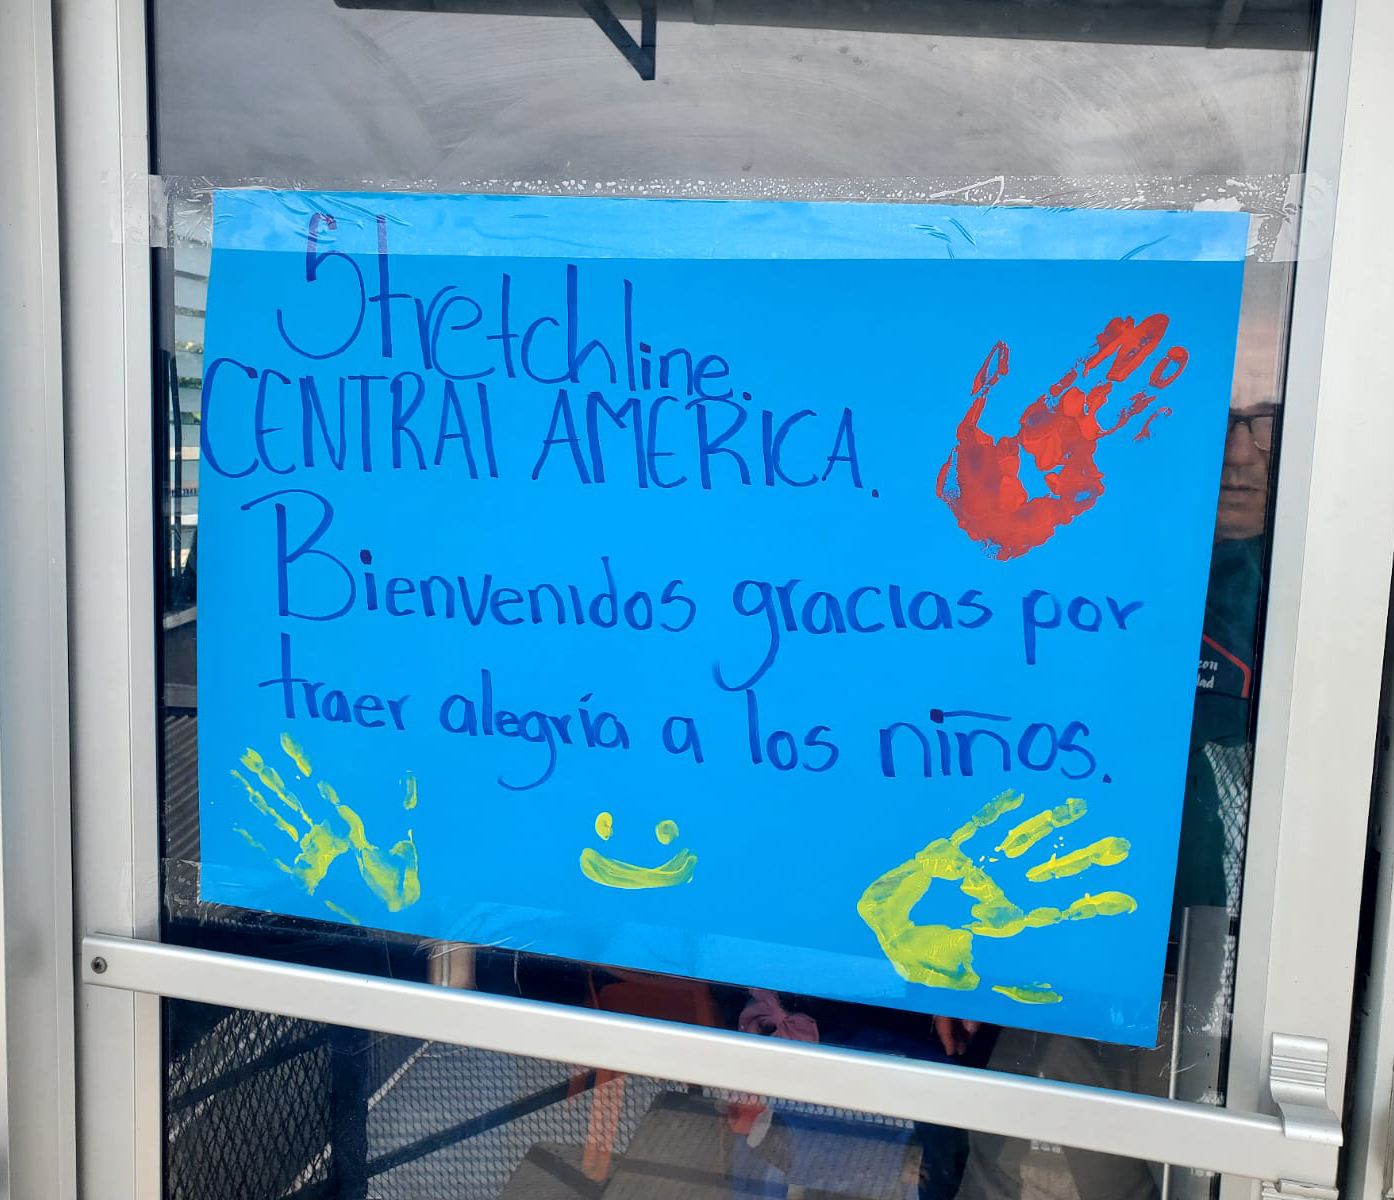 Stretchline.
CENTRAL AMERICA.
Bienvenidos gracias por
traer alegría a los niños.
con